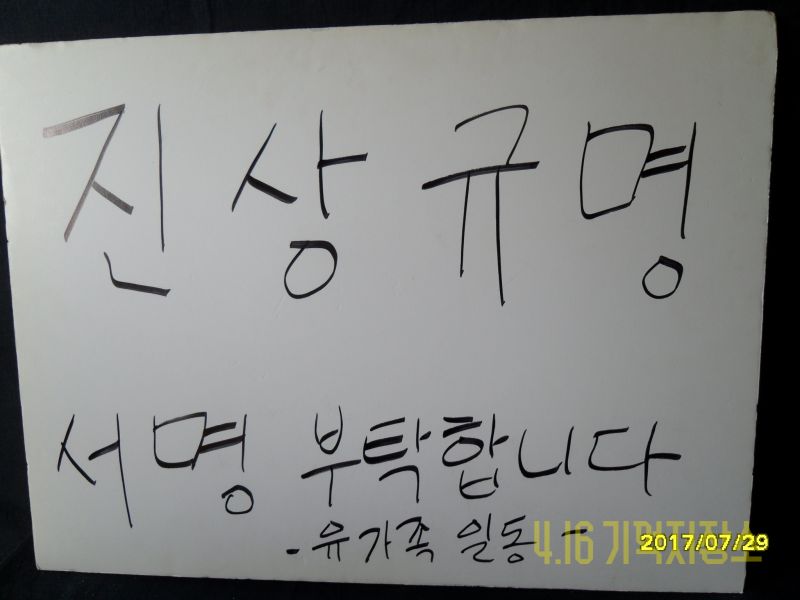 진상규명
서명 부탁합니다
- 유가족 일동 -
4.16 기억저장소
2017/07/29